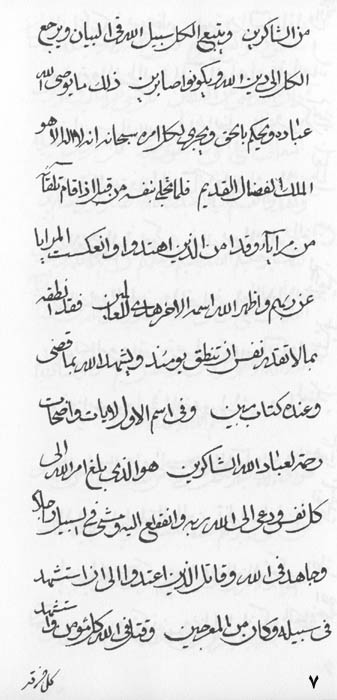 من الشاكرين ويتبع الكل سبيل الله في البيان ويرجع
الكل الى دين الله ويكونوا صابرين ذلك ما يوصى الله
عباده ويحكم بالحق ويجرى لكل امره سبحانه انه لا اله الا هو
الملك الفضال القديم فلما تجلى نفسه من قبل اذا قام تلقآء
من مرآياه وقد امن الذين اهتدوا وانعكست المرايا
عن ربهم واظهر الله اسمه الاخر هدى للعالمين فقد انطقه
بما لا تقدر نفس ان تنطق يومئذ ويشهد الله بما قضى
وعنده كتاب مبين وفي اسم الاول لايات واضحات
وحجة لعباد الله الشاكرين هو الذي بلغ امر الله الى
كل نفس ودعى الى الله ربه وانقطع اليه ومشى في السبيل
وجاهد في الله وقاتل الذين اعتدوا الى ان استشهد
في سبيله وكان من الموحدين وقتل في الله كل مؤمن واستشهد
كل فرقة
٧